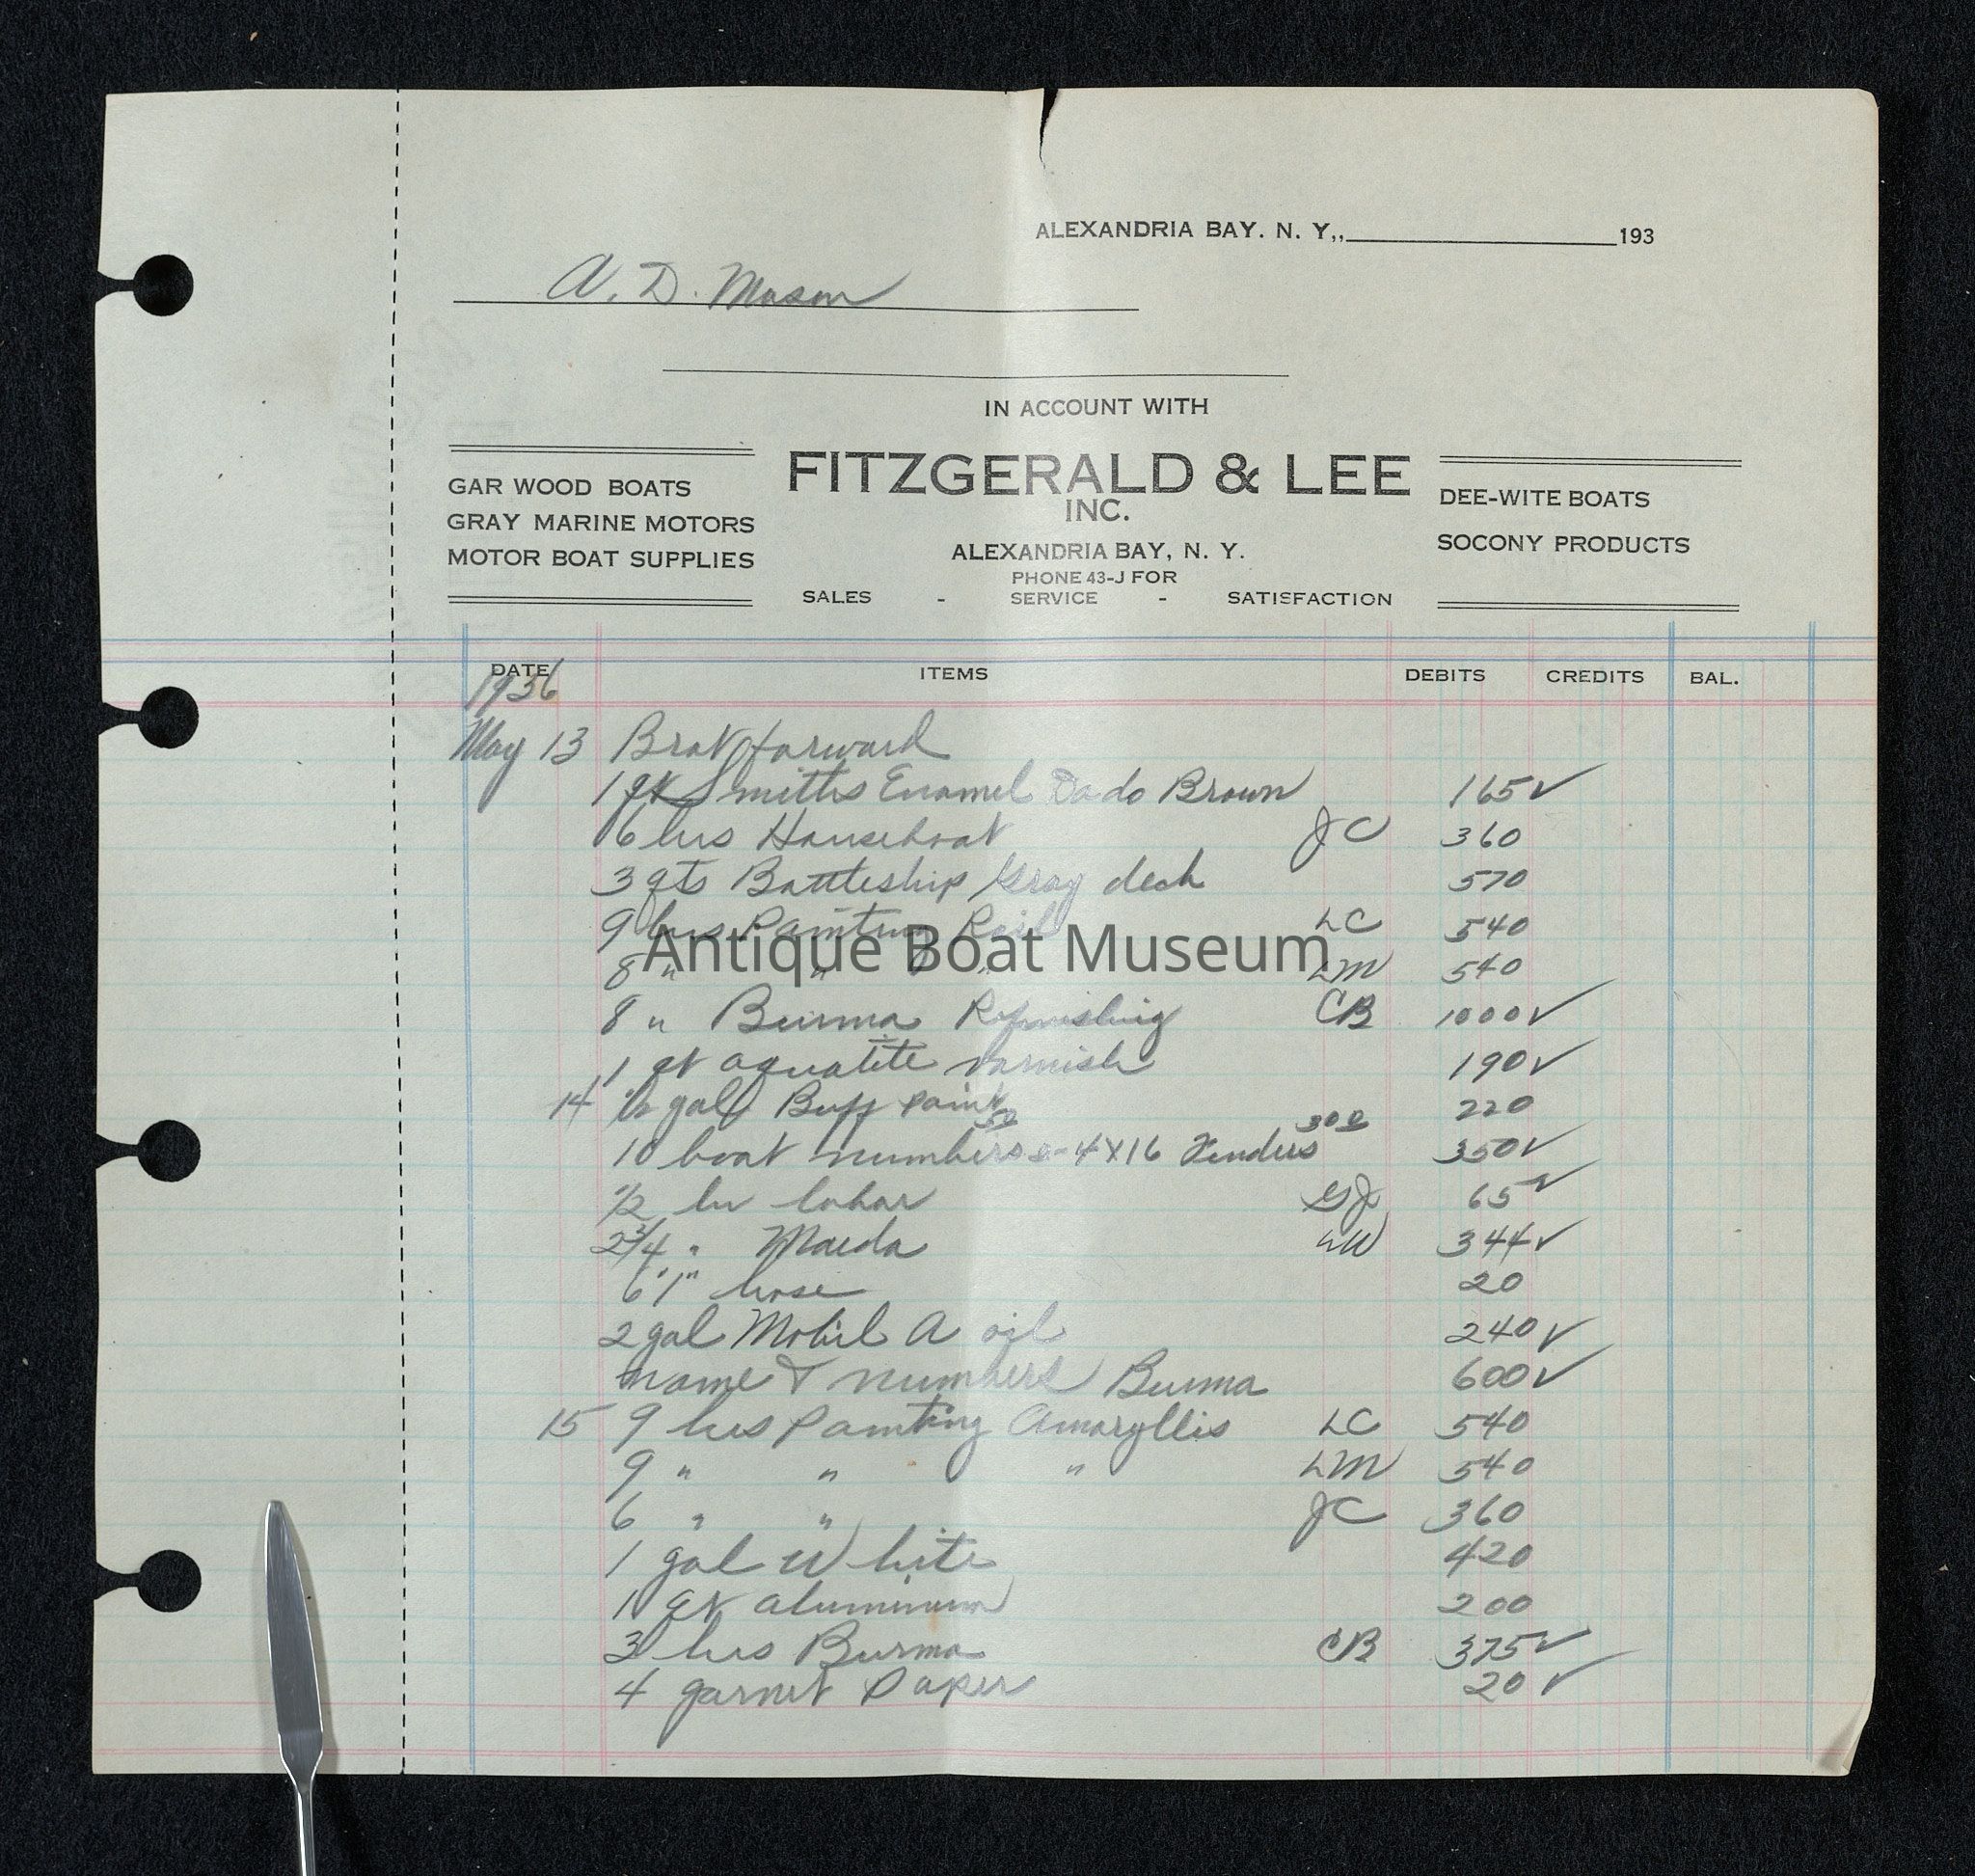 ALEXANDRIA BAY. N. Y,, 193
A. D. Mason
IN ACCOUNT WITH
GAR WOOD BOATS
GRAY MARINE MOTORS
MOTOR BOAT SUPPLIES
FITZGERALD & LEE
INC.
ALEXANDRIA BAY, N. Y.
PHONE 43-J FOR
SALES - SERVICE - SATISFACTION
DEE-WITE BOATS
SOCONY PRODUCTS
DATE ITEMS DEBITS CREDITS BAL.
1936
May 13 Brot forward
1 qt Smiths Enamel Dado Brown 165 ✓
6 hrs Houseboat JC 360
3 qts Battleship Gray deck 570
9 hrs Painting Rail LC 540
8 " " " LM 540
Antique Boat Museum
8 " Burma Refinishing CB 1000 ✓
1 qt aquatite varnish 190 ✓
14 ½ gal Buff paint 220
10 boat numbers 50 - 4X16 Fenders 300 350 ✓
½ hr labor GJ 65 ✓
2¾ " Maeda LW 344 ✓
6" 1" hose 20
2 gal Mobil A oil 240 ✓
name & numbers Burma 600 ✓
15 9 hrs Painting Amaryllis LC 540
9 " " " LM 540
6 " " JC 360
1 gal White 420
1 qt aluminum 200
3 hrs Burma CB 375 ✓
4 garnet paper 20 ✓